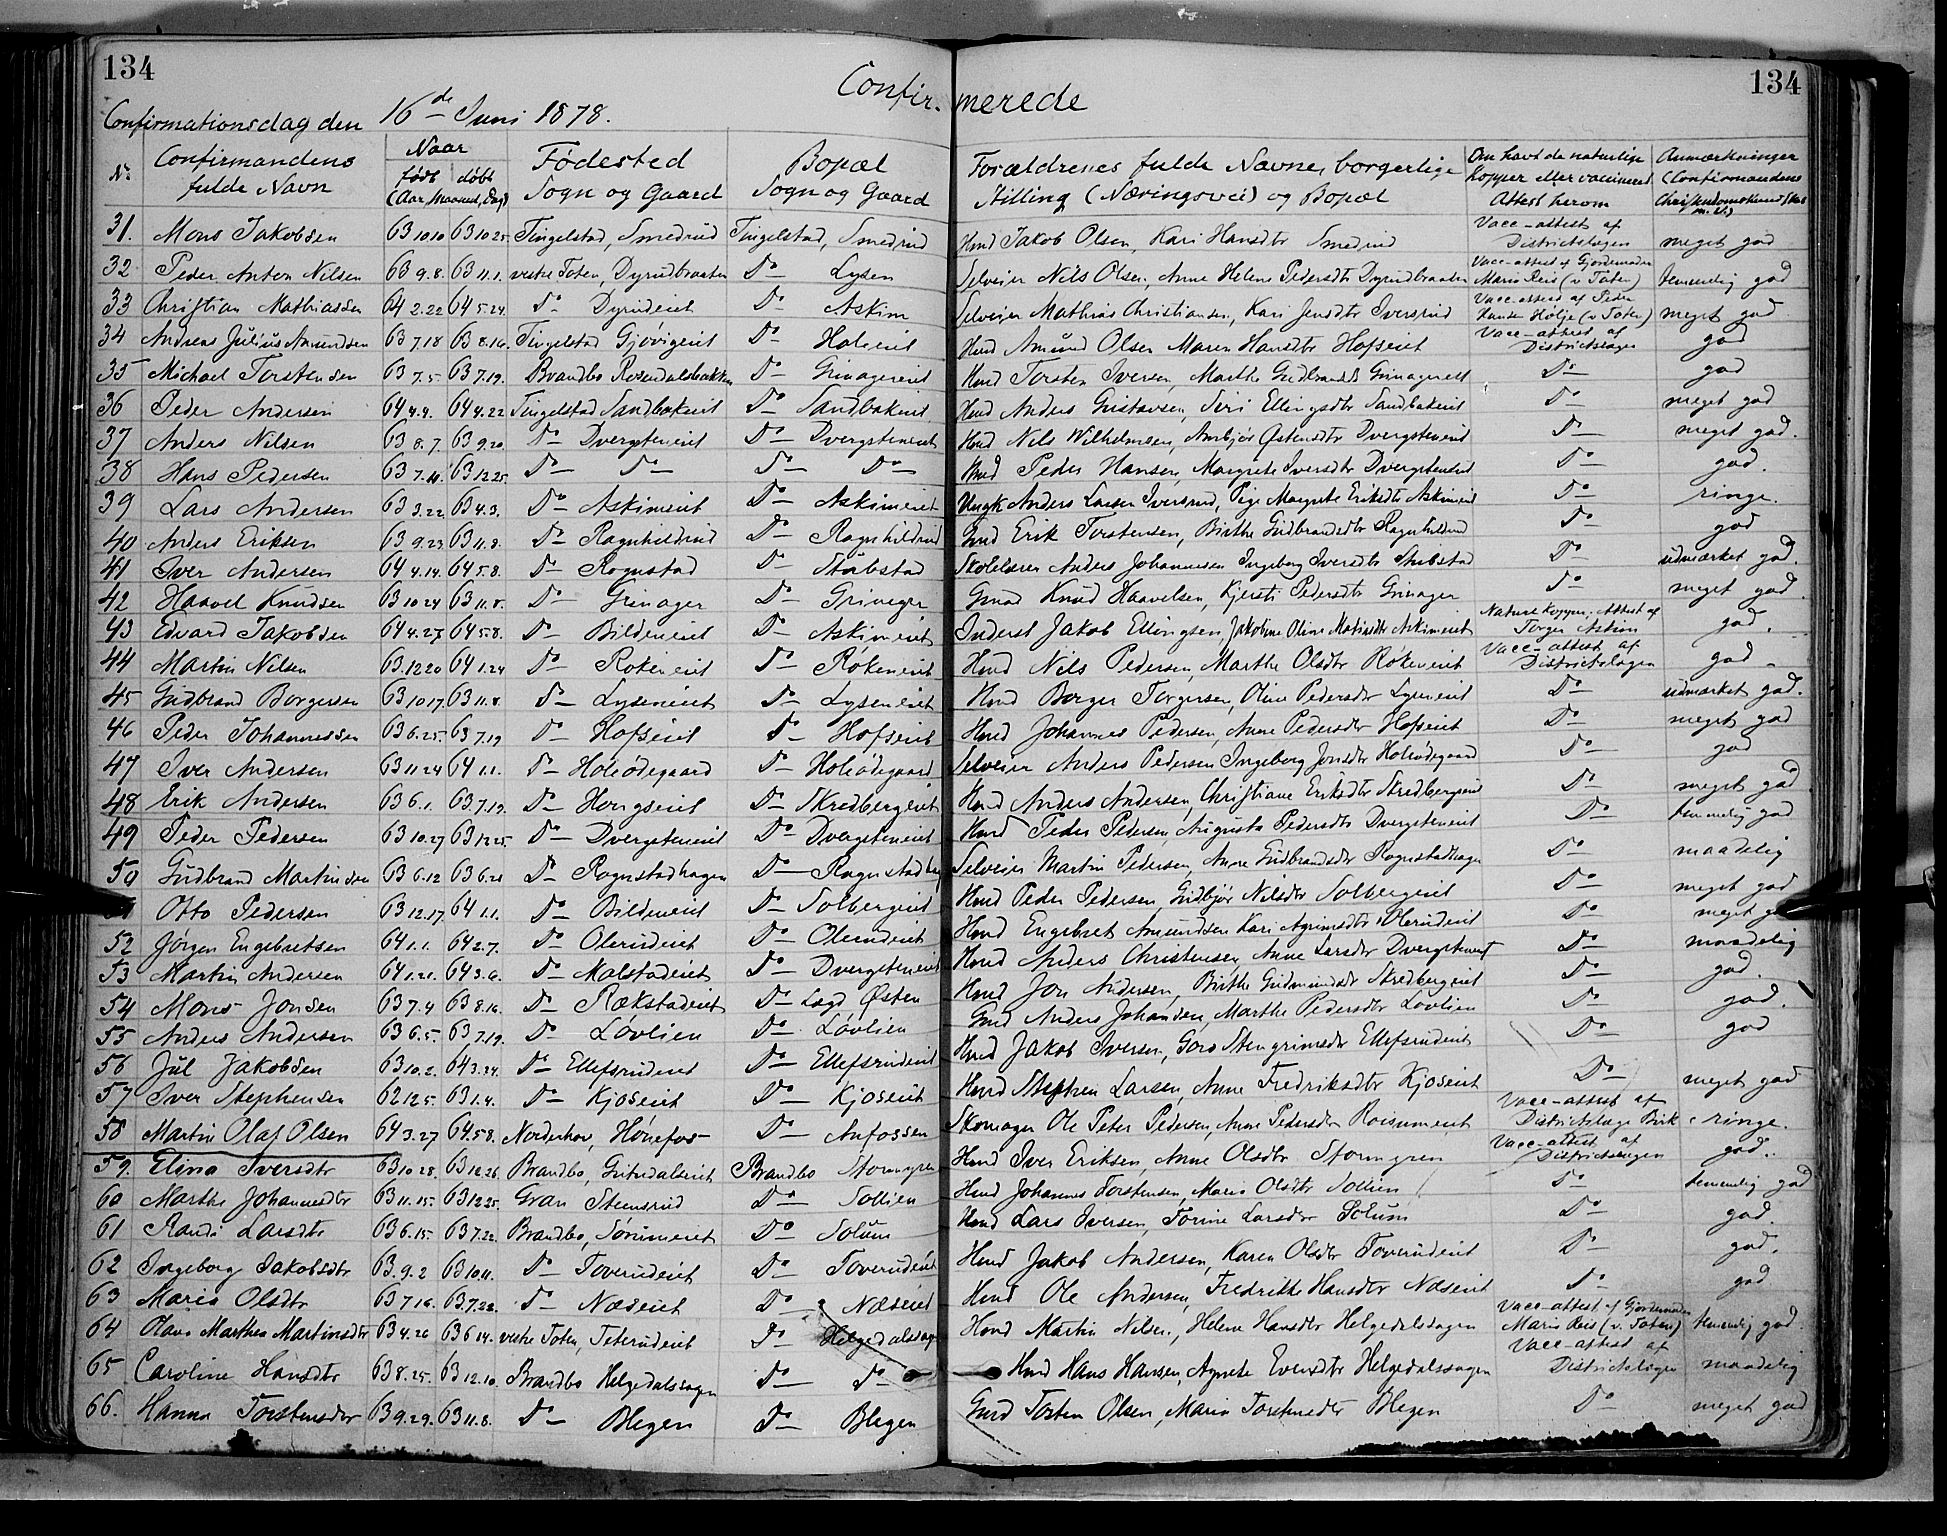 134 134
Confir- merede
Confirmationsdag den 16de Juni 1878.
No Confirmandens fulde Navn Naar født døbt (Aar, Maaned, Dag) Fødested Sogn og Gaard Bopæl Sogn og Gaard Forældrenes fulde Navne, borgerlige Stilling (Næringsvei) og Bopæl Om havt de naturlige Kopper eller vaccineret Attest herom Anmærkninger (Confirmandens Christendomskundskab m. v.)
31. Mons Jakobsen 63 10.10 63 10.25 Tingelstad, Smedrud Tingelstad, Smedrud Hmd Jakob Olsen, Kari Hansdtr Smedrud Vacc-attest af Districtslægen meget god
32 Peder Anton Nilsen 63 9.8. 63 11.1. vestre Toten, Dyrudbraaten Do Lysen Selveier Nils Olsen, Anne Helene Pedersdtr Dyrudbraaten Vacc-attest af Gjordemoder Marie Reis (v Toten) temmelig god
33 Christian Mathiassen 64 2.22 64 5.24. Do Dyrudeiet Do Askim Selveier Mathias Christiansen, Kari Jensdtr Iversrud Vacc-attest af Peder Hansen Holje (v Toten) meget god
34 Andreas Julius Amundsen 63 7.18 63 8.16. Tingelstad Gjøvigeiet Do Holeiet Hmd Amund Olsen Maren Hansdtr Hofseiet Vacc-attest af Districtslægen god
35 Michael Torstensen 63 7.5. 63 7.19. Brandbo Rosendalsbakken Do Grinagereiet Hmd Torsten Iversen, Marthe Gudbrandsdtr Grinagereiet Do god
36 Peder Andersen 64 4.4. 64 4.22 Tingelstad Sandbakeiet Do Sandbakeiet Hmd Anders Gustavsen, Siri Ellingsdtr Sandbakeiet Do meget god
37 Anders Nilsen 63 8.7. 63 9.20. Do Dvergsteneiet Do Dvergsteneiet Hmd Nils Wilhelmsen, Anbjør Østensdtr Dvergsteneiet Do meget god.
38 Hans Pedersen 63 7.14. 63 12.25. Do Do Do Do Hmd Peder Hansen, Margrete Iversdtr Dvergsteneiet Do god.
39 Lars Andersen 63 3.22 63 4.3. Do Askimeiet Do Askimeiet Ungk Anders Larsen Iversrud, Pige Margrete Eriksdtr Askimeiet Do ringe.
40 Anders Eriksen 63 9.23 63 11.8. Do Ragnhildrud Do Ragnhildrud Gmd Erik Torstensen, Birthe Gudbrandsdtr Ragnhildrud Do god
41 Iver Andersen 64 4.14. 64 5.8. Do Rognstad Do Stubstad Skolelærer Anders Johannesen Ingeborg Iversdtr Stubstad Do udmærket god.
42 Haavel Knudsen 63 10.24 63 11.8. Do Grinager Do Grinager Gmd Knud Haavelsen, Kjersti Pedersdtr Grinager Do meget god.
43 Edvard Jakobsen 64 4.27 64 5.8. Do Bildeneiet Do Askimeiet Inderst Jakob Ellingsen, Jakobine Oline Mathisdtr Askimeiet Naturl Kopper. Attest af Torger Askim god.
44 Martin Nilsen 63.12.20 64 1.24 Do Røkeneiet Do Røkeneiet Hmd Nils Pedersen, Marthe Olsdtr Røkeneiet Vacc-attest af Districtslægen god
45 Gudbrand Borgersen 63 10.17. 63 11.8. Do Lyseneiet Do Lyseneiet Hmd Borger Torgersen, Oline Pedersdtr Lyseneiet Do udmærket god.
46 Peder Johannessen 63 6.25. 63 7.19 Do Hofseiet Do Hofseiet Hmd Johannes Pedersen, Anne Pedersdtr Hofseiet Do meget god
47 Iver Andersen 63 11.24 64 1.1. Do Holeødegaard Do Holeødegaard Selveier Anders Pedersen Ingeborg Jonsdtr Holeødegaard Do god
48 Erik Andersen 63 6.1. 63.7.19. Do Hongseiet Do Skredbergeiet Hmd Anders Andersen, Christiane Eriksdtr Skredbergeiet Do meget god
49 Peder Pedersen 63 10.27 63 12.25. Do Dvergsteneiet Do Dvergsteneiet Hmd Peder Pedersen, Augusta Pedersdtr Dvergsteneiet Do temmelig god
50 Gudbrand Martinsen 63 6.12 63 6.28 Do Rognstadhagen Do Rognstadhag Selveier Martin Pedersen, Anne Gudbrandsdtr Rognstadhagen Do maadelig
Otto Pedersen 63 12.17. 64 1.1. Do Bildeneiet Do Solbergeiet Hmd Peder Pedersen, Gudbjør Nilsdtr Solbergeiet Do meget god
52 Jørgen Engebretsen 64 1.1. 64 2.7. Do Olerudeiet Do Olerudeiet Hmd Engebret Amundsen Kari Olerudeiet Do meget g
53 Martin Andersen 64 1.21. 64 3.6. Do Molstadeiet Do Dvergsteneiet Hmd Anders Christensen, Anne Larsdtr Dvergsteneiet Do maadelig
54 Mons Jonsen 63 7.4 63 8.16. Do Rækstadeiet Do Lægd Østen Hmd Jon Andersen, Birthe Gudmundsdtr Skredbergeiet Do god.
55 Anders Andersen 63 6.5. 63 7.19. Do Løvlien Do Løvlien Gmd Anders Johansen, Marthe Pedersdtr Løvlien Do god.
56 Jul Jakobsen 63 10.2. 64 3.24. Do Ellefsrudeiet Do Ellefsrudeiet Hmd Jakob Iversen, Goro Stengrimsdtr Ellefsrudeiet Do god
57 Iver Stephensen 62 12.5. 63 1.4. Do Kjoseiet Do Kjoseiet Hmd Stephen Larsen, Anne Fredriksdtr Kjoseiet Do meget god
58 Martin Olaf Olsen 64 3.27 64.5.8. Norderhov, Hønefos Do Anfossen Skomager Ole Peter Pedersen, Anne Pedersdtr Roisumeiet Vacc-attest af Districtslæge Birk ringe.
59. Elina Iversdtr 63 10.28. 63 12.26. Brandbo, Gutudalseiet Brandbo Stormyren Hmd Iver Eriksen, Anne Olsdtr Stormyren Vacc-attest af Districtslægen god.
60 Marthe Johannesdtr 63 11.15. 63 12.25. Gran Steensrud Do Sollien Hmd Johannes Torstensen, Marie Olsdtr Sollien Do temmelig god
61 Randi Larsdtr 63 6.15. 63 7.22. Brandbo, Sørumeiet Do Solum Hmd Lars Iversen, Torine Larsdtr Solum Do god.
62 Ingeborg Jakobsdtr 63.9.2 63 10.11. Do Toverudeiet Do Toverudeiet Hmd Jakob Andersen, Karen Olsdtr Toverudeiet Do god.
63 Marie Olsdtr 63 7.16. 63.7.22. Do Næseiet Do Næseiet Hmd Ole Andersen, Fredrikke Hansdtr Næseiet Do god
64 Olave Marthea Martinsdtr 63 4.26 63 6.14. vestre Toten, Teterudeiet Do Helgedalshag Hmd Martin Nilsen, Helene Hansdtr Helgedalshagen Vacc-attest af Gjordemoder Marie Reis (v. Toten) temmelig god.
65 Caroline Hansdtr 63 8.25. 63 12.10. Brandbo Helgedalshagen Do Do Hmd Hans Hansen, Agnete Evensdtr Helgedalshagen Vacc-attest af Districtslægen maadelig
66. Hanna Torstensdtr 63 9.29. 63 11.8. Do Blegen Do Blegen Gmd Torsten Olsen, Maria Torstensdtr Blegen Do meget god